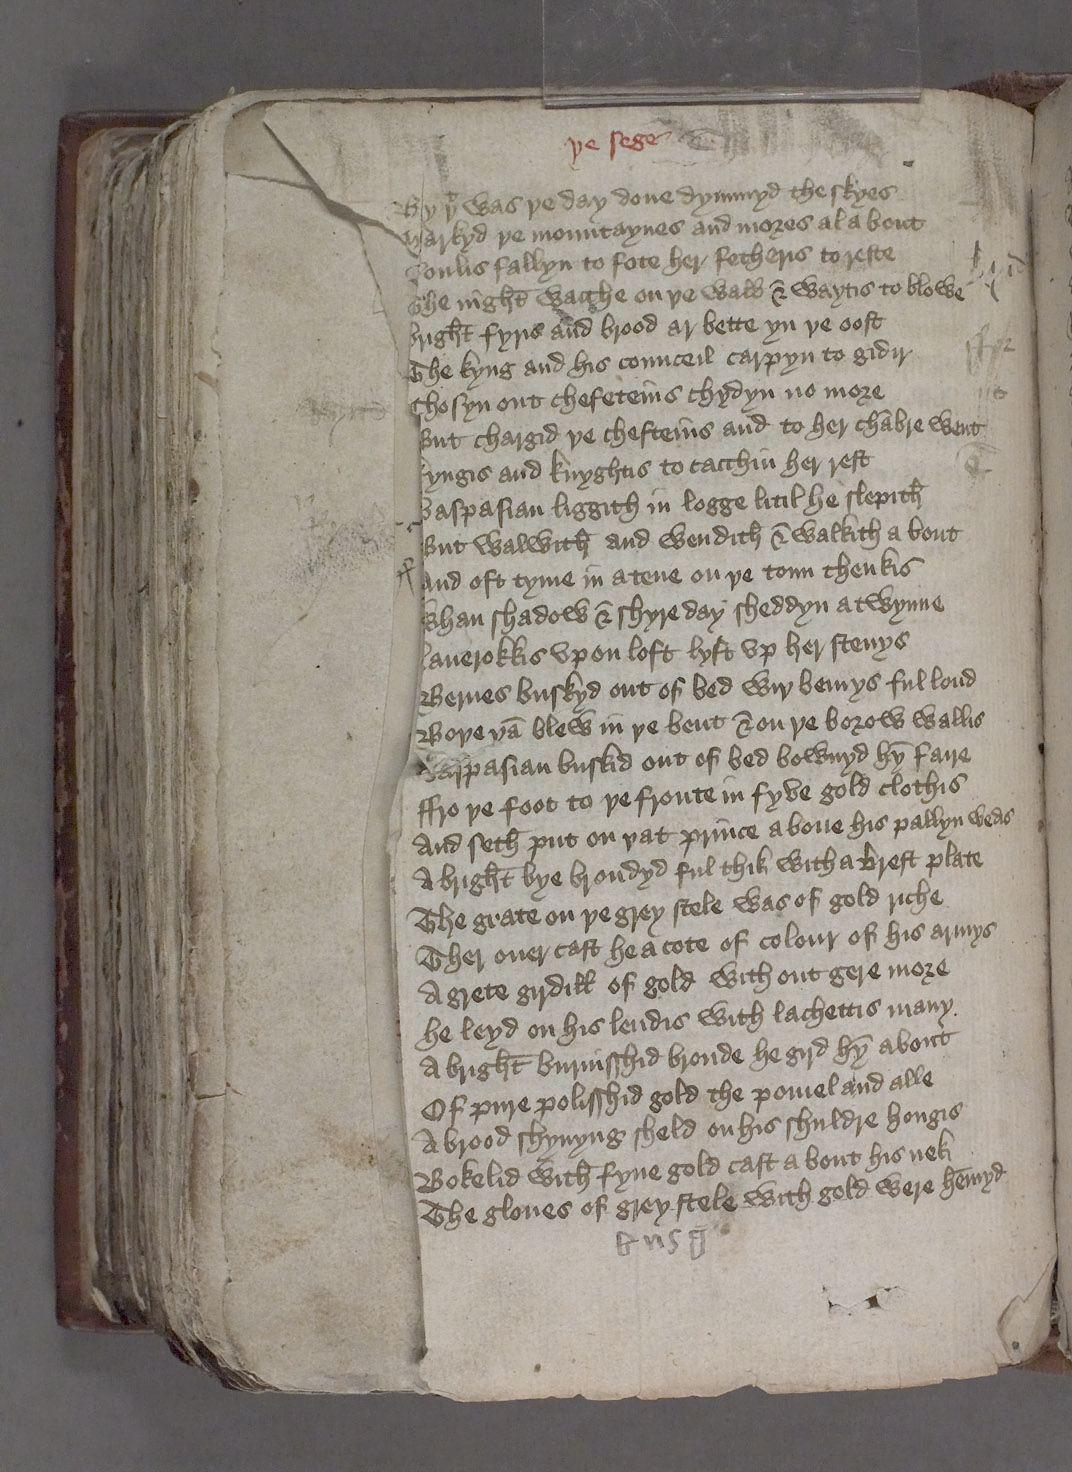 ye sege
By yͭ was ye day done dymmyd the skyes
Markyd ye mountaynes and mores al a bout
Foulis fallyn to fote her fetheris to reste
The night watche on ye wall & waytis to blowe
Bright fyris and brood ar bette yn ye oost
The kyng and his counceil carpyn to gidir
Chosyn out chefeteins chydyn no more
But chargid ye chefteins and to her chābre went
kyngis and knyghtis to cacchin her rest
Vaspasian liggith in logge litil he slepith
But walwith and wendith & walkith a bout
And oft tyme in a tene on ye toun thenkis
Whan shadow & shyre day sheddyn a twynne
lauerokkis vpon loft lyft vp her stenys
Bernes buskyd out of bed wiy bemys ful loud
Boye yā blew in ye bent & on ye borow wallis
Vaspasian buskid out of bed bownyd hȳ faire
ffro ye foot to ye fronte in fyve gold clothis
And seth put on yat prince a boue his pallyn wedis
A bright bye brondyd ful thik with a brest plate
The grate on ye grey stele was of gold riche
Ther ouer cast he a cote of colour of his armys
A grete girdill of gold with out gere more
he leyd on his lendis with lachettis many
A bright burnisshid bronde he gird hȳ about
Of pure polisshid gold the pomel and alle
A brood shynyng sheld on his shuldre hongis
Bokelid with fyne gold cast a bout his nek
The gloues of grey stele with gold were hēmyd